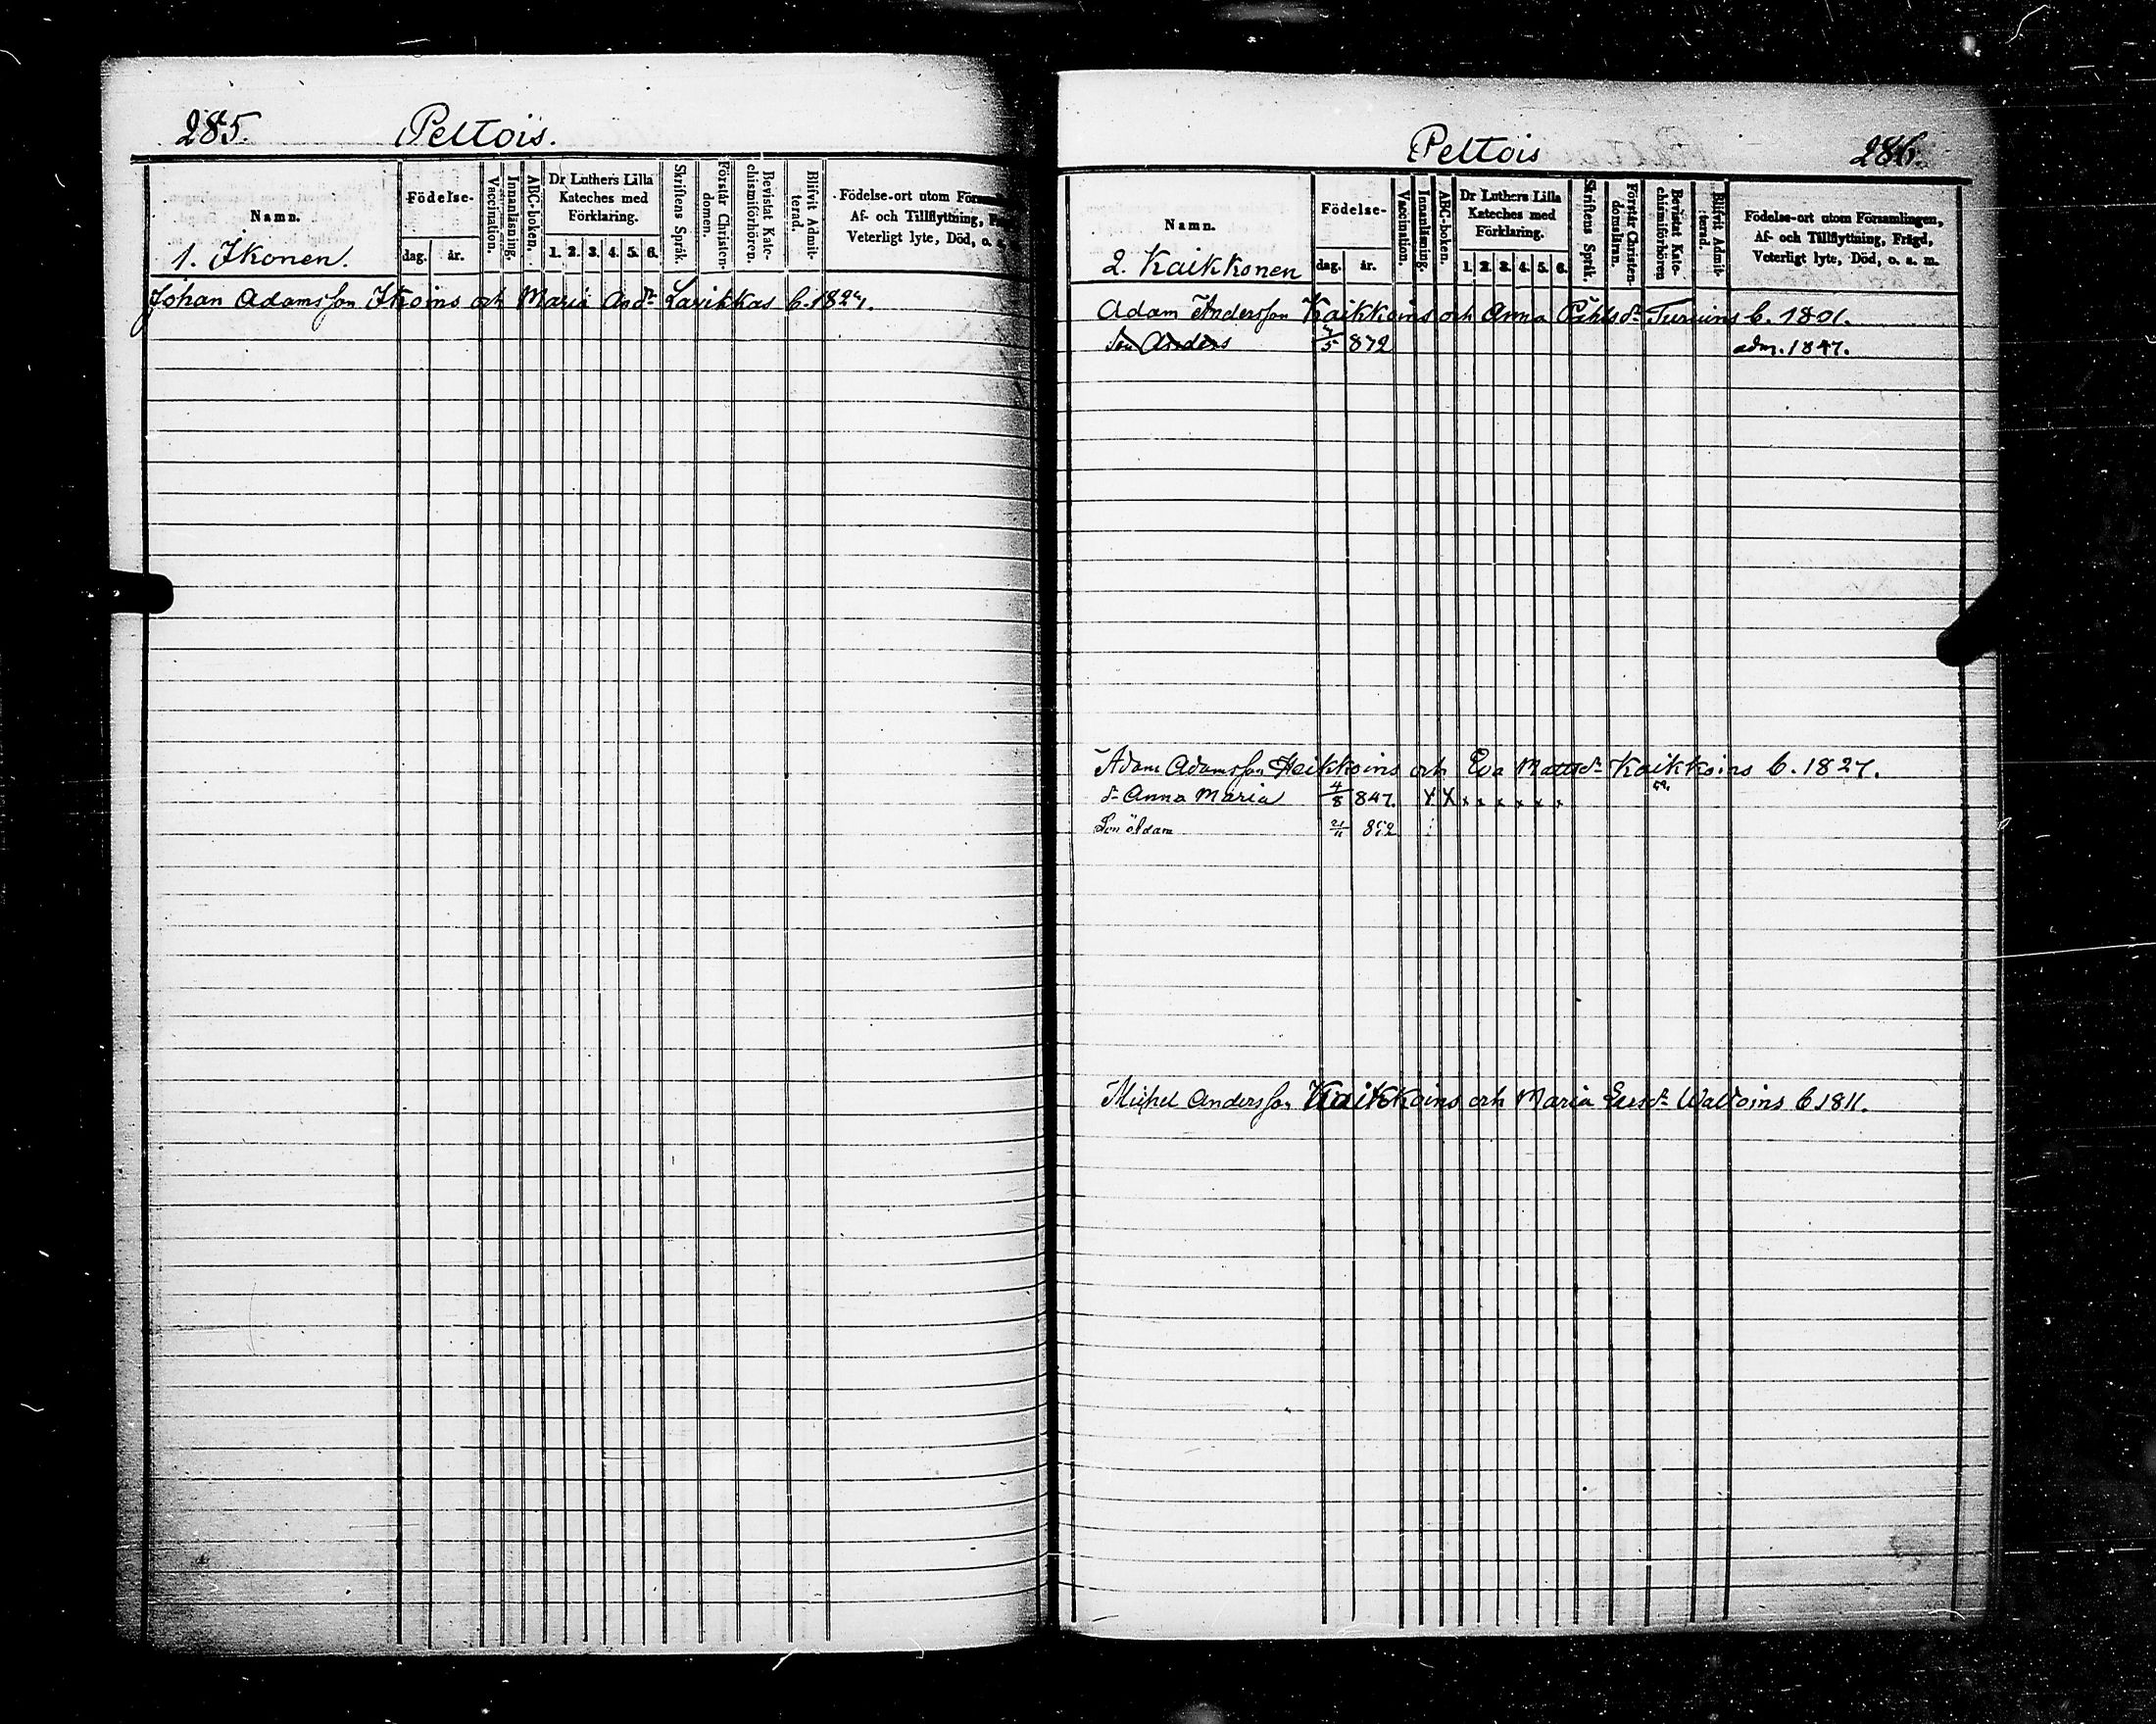 285. Peltois.
Namn.
Födelse-
dag. år.
Vaccination.
Innanläsning.
ABC-boken.
Dr Luthers Lilla
Kateches med
Förklaring.
1. 2. 3. 4. 5. 6.
Skriftens Språk.
Förstår Christen-
domen.
Bevistat Kate-
chismiförhören.
Blifvit Admit-
terad.
Födelse-ort utom
Af- och Tillflyttning,
Veterligt lyte, Död, o. s.
1. Ikonen.
Johan Adamsson Ikoins och Maria And:dr Larikkas C. 1827.
Peltois 286.
Namn.
Födelse-
dag. år.
Vaccination.
Innanläsning.
ABC-boken.
Dr Luthers Lilla
Kateches med
Förklaring.
1. 2. 3. 4. 5. 6.
Skriftens Språk.
Förstår Christen-
domsläran.
Bevistat Kate-
chismiförhören
Blifvit Admit-
terad.
Födelse-ort utom Församlingen,
Af- och Tillflyttning, Frägd,
Veterligt lyte, Död, o. s. m.
2. Kaikkonen
Adam Andersson Kaikkoins och Anna Pihlsdr C. 1801.
Son Anders 832 adm. 1847.
Adam Adamsson Heikkoins och Eva Mattsdr Kaikkoins C. 1827.
dr Anna Maria 4/8 847. x x x x x x x x
Son Adam 2/11 852
Michel Andersson Kaikkoins och Maria Waltoins C 1811.